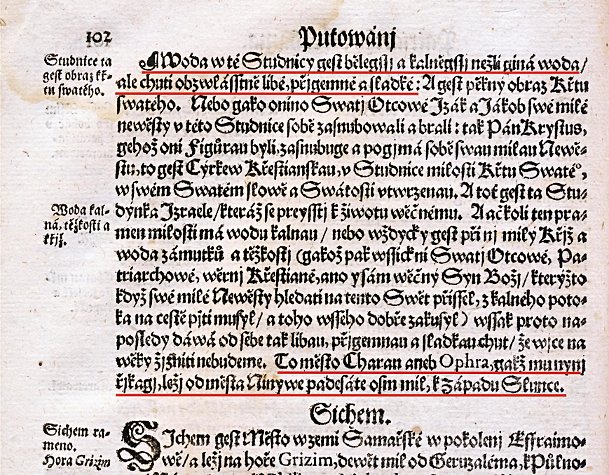 102
Putowánj
Studnice ta
gest obraz kř-
tu swatého.
Woda w té Studnicy gest bělegssj a kalněgssj nežli giná woda/
ale chuti obzwlásstně libé, přjgemné a sladké: A gest pěkný obraz Křtu
swatého. Nebo gako onino Swatj Otcowé Izák a Jákob swé milé
newěsty v této Studnice sobě zasnubowali a brali: tak Pán Krystus,
gehož oni Figůrau byli, zasnubuge a pogjmá sobě swau milau Newě-
stu, to gest Cýrkew Křestianskau, v Studnice milosti Křtu Swatéº,
w swém Swatém slowě a Swátosti vtwrzenau. A toť gest ta Stu-
Woda kal-
ná, těžkosti a
křjž.
dýnka Izraele/kteráž se preysstj k žiwotu wěčnému. A ačkoli ten pra-
men milosti má wodu kalnau / nebo wždycky gest při nj milý Křjž a
woda zámutků a těžkostj (gakož pak wssickni Swatj Otcowé, Pa-
triarchowé, wěrnj Křestiané, ano y sám wěčný Syn Božj / kterýžto
když swé milé Newěsty hledati na tento Swět přissel, z kalného poto-
ka na cestě pjti musyl / a toho wsseho dobře zakusyl) wssak proto na-
posledy dáwá od sebe tak libau, přjgemnau a sladkau chut / že wjce na
wěky žjzniti nebudeme. To město Charan aneb Ophra, gakž mu nynj
řjkagj, ležj od města Ninywe padesáte osm mil, k Západu Slunce.
Sichem.
Sichem ra-
meno.
Hora Grizim
SJchem gest Město w zemi Samařské w pokolenj Effraimo-
wě/ a ležj na hoře Grizim, dewět mil od Geruzaléma, k Půlno-